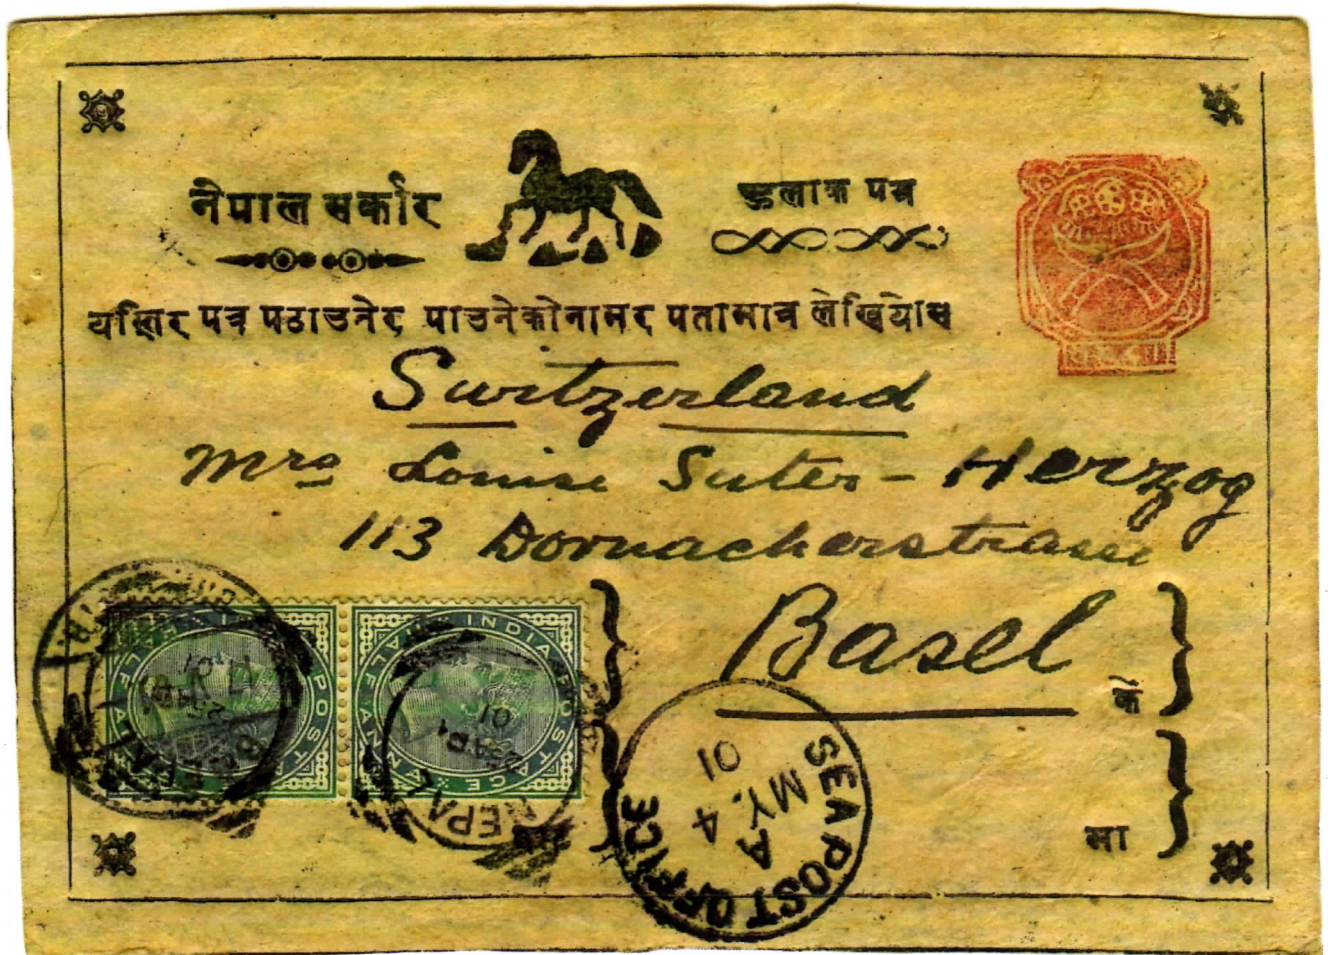 नेपाल सर्कार
पत्र
पत्र पठाउनेर पाउनेकोनामर पतामात्र लेखियोस
Switzerland
Mrs Louise Suter - Herzog
113 Dornacherstrasse
Basel
के
मा
INDIA POSTAGE
HALF ANNA
INDIA POSTAGE
HALF ANNA
NEPAL
01
SEA POST OFFICE
A
MY. 4
01